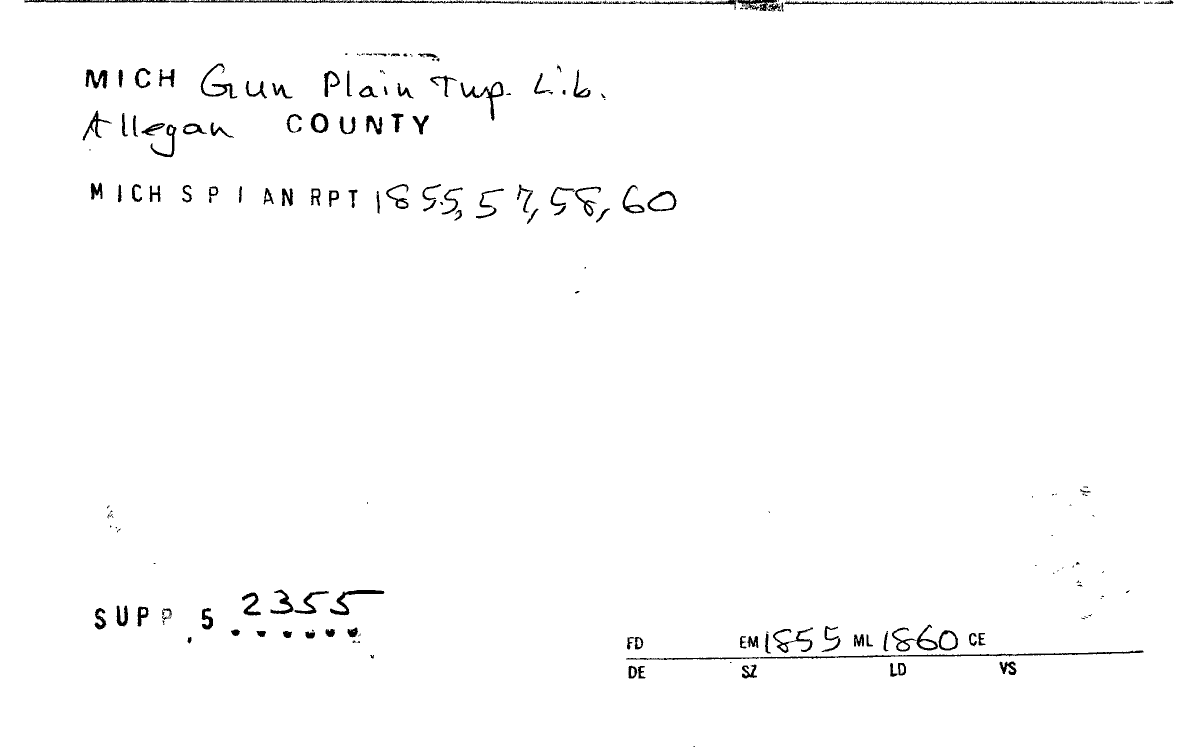 MICH Gun Plain Twp. Lib.
Allegan COUNTY
MICH S P I AN RPT 1855, 57, 58, 60
SUPP. 5 2355
FD EM 1855 ML 1860 CE
DE SZ LD VS